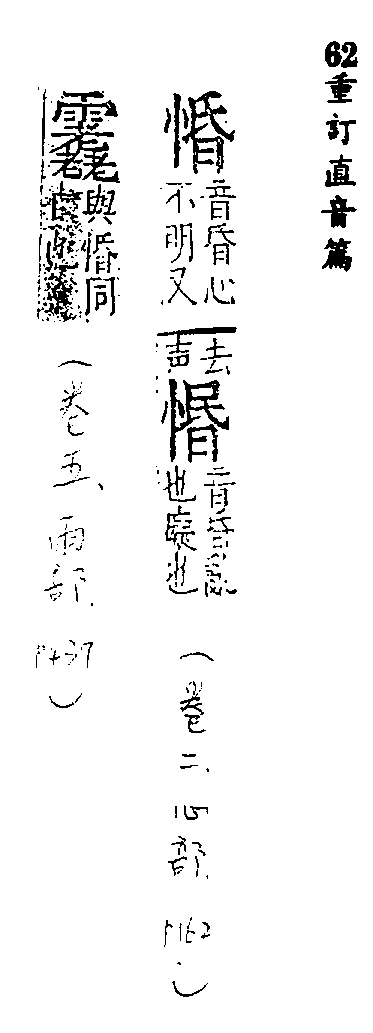 62重訂直音篇
惛音昏心不明又去声
惽音昏亂也癡也
(卷二、心部、P162、)
與惛同
(卷五、雨部、P437)